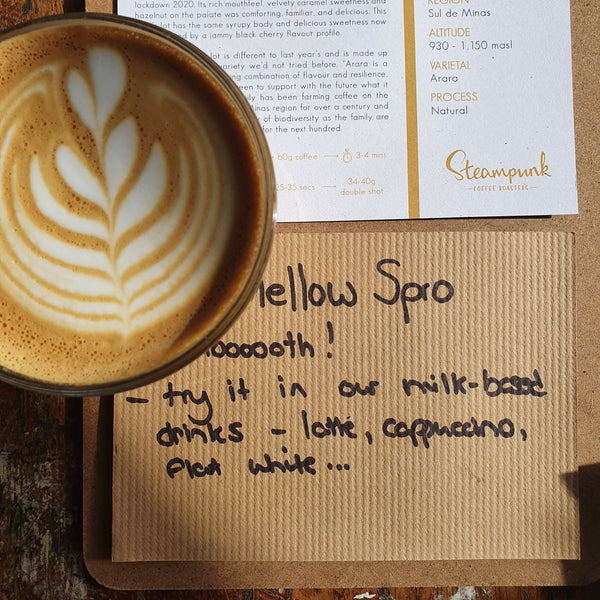 lockdown 2020. Its rich mouthfeel, velvety caramel sweetness and
hazelnut on the palate was comforting, familiar, and delicious. This
lot has the same syrupy body and delicious sweetness now
by a jammy black cherry flavour profile.
lot is different to last year's and is made up
variety we'd not tried before. "Arara is a
ing combination of flavour and resilience.
een to support with the future what it
ily has been farming coffee on the
inas region for over a century and
of biodiversity as the family are
for the next hundred.
60g coffee → 3-4 mins
25-35 secs → 34-40g
double shot
REGION
Sul de Minas
ALTITUDE
930 - 1,150 masl
VARIETAL
Arara
PROCESS
Natural
Steampunk
COFFEE ROASTERS
ellow Spro
oooooth!
- try it in our milk-based
drinks - latte, cappuccino,
flat white...